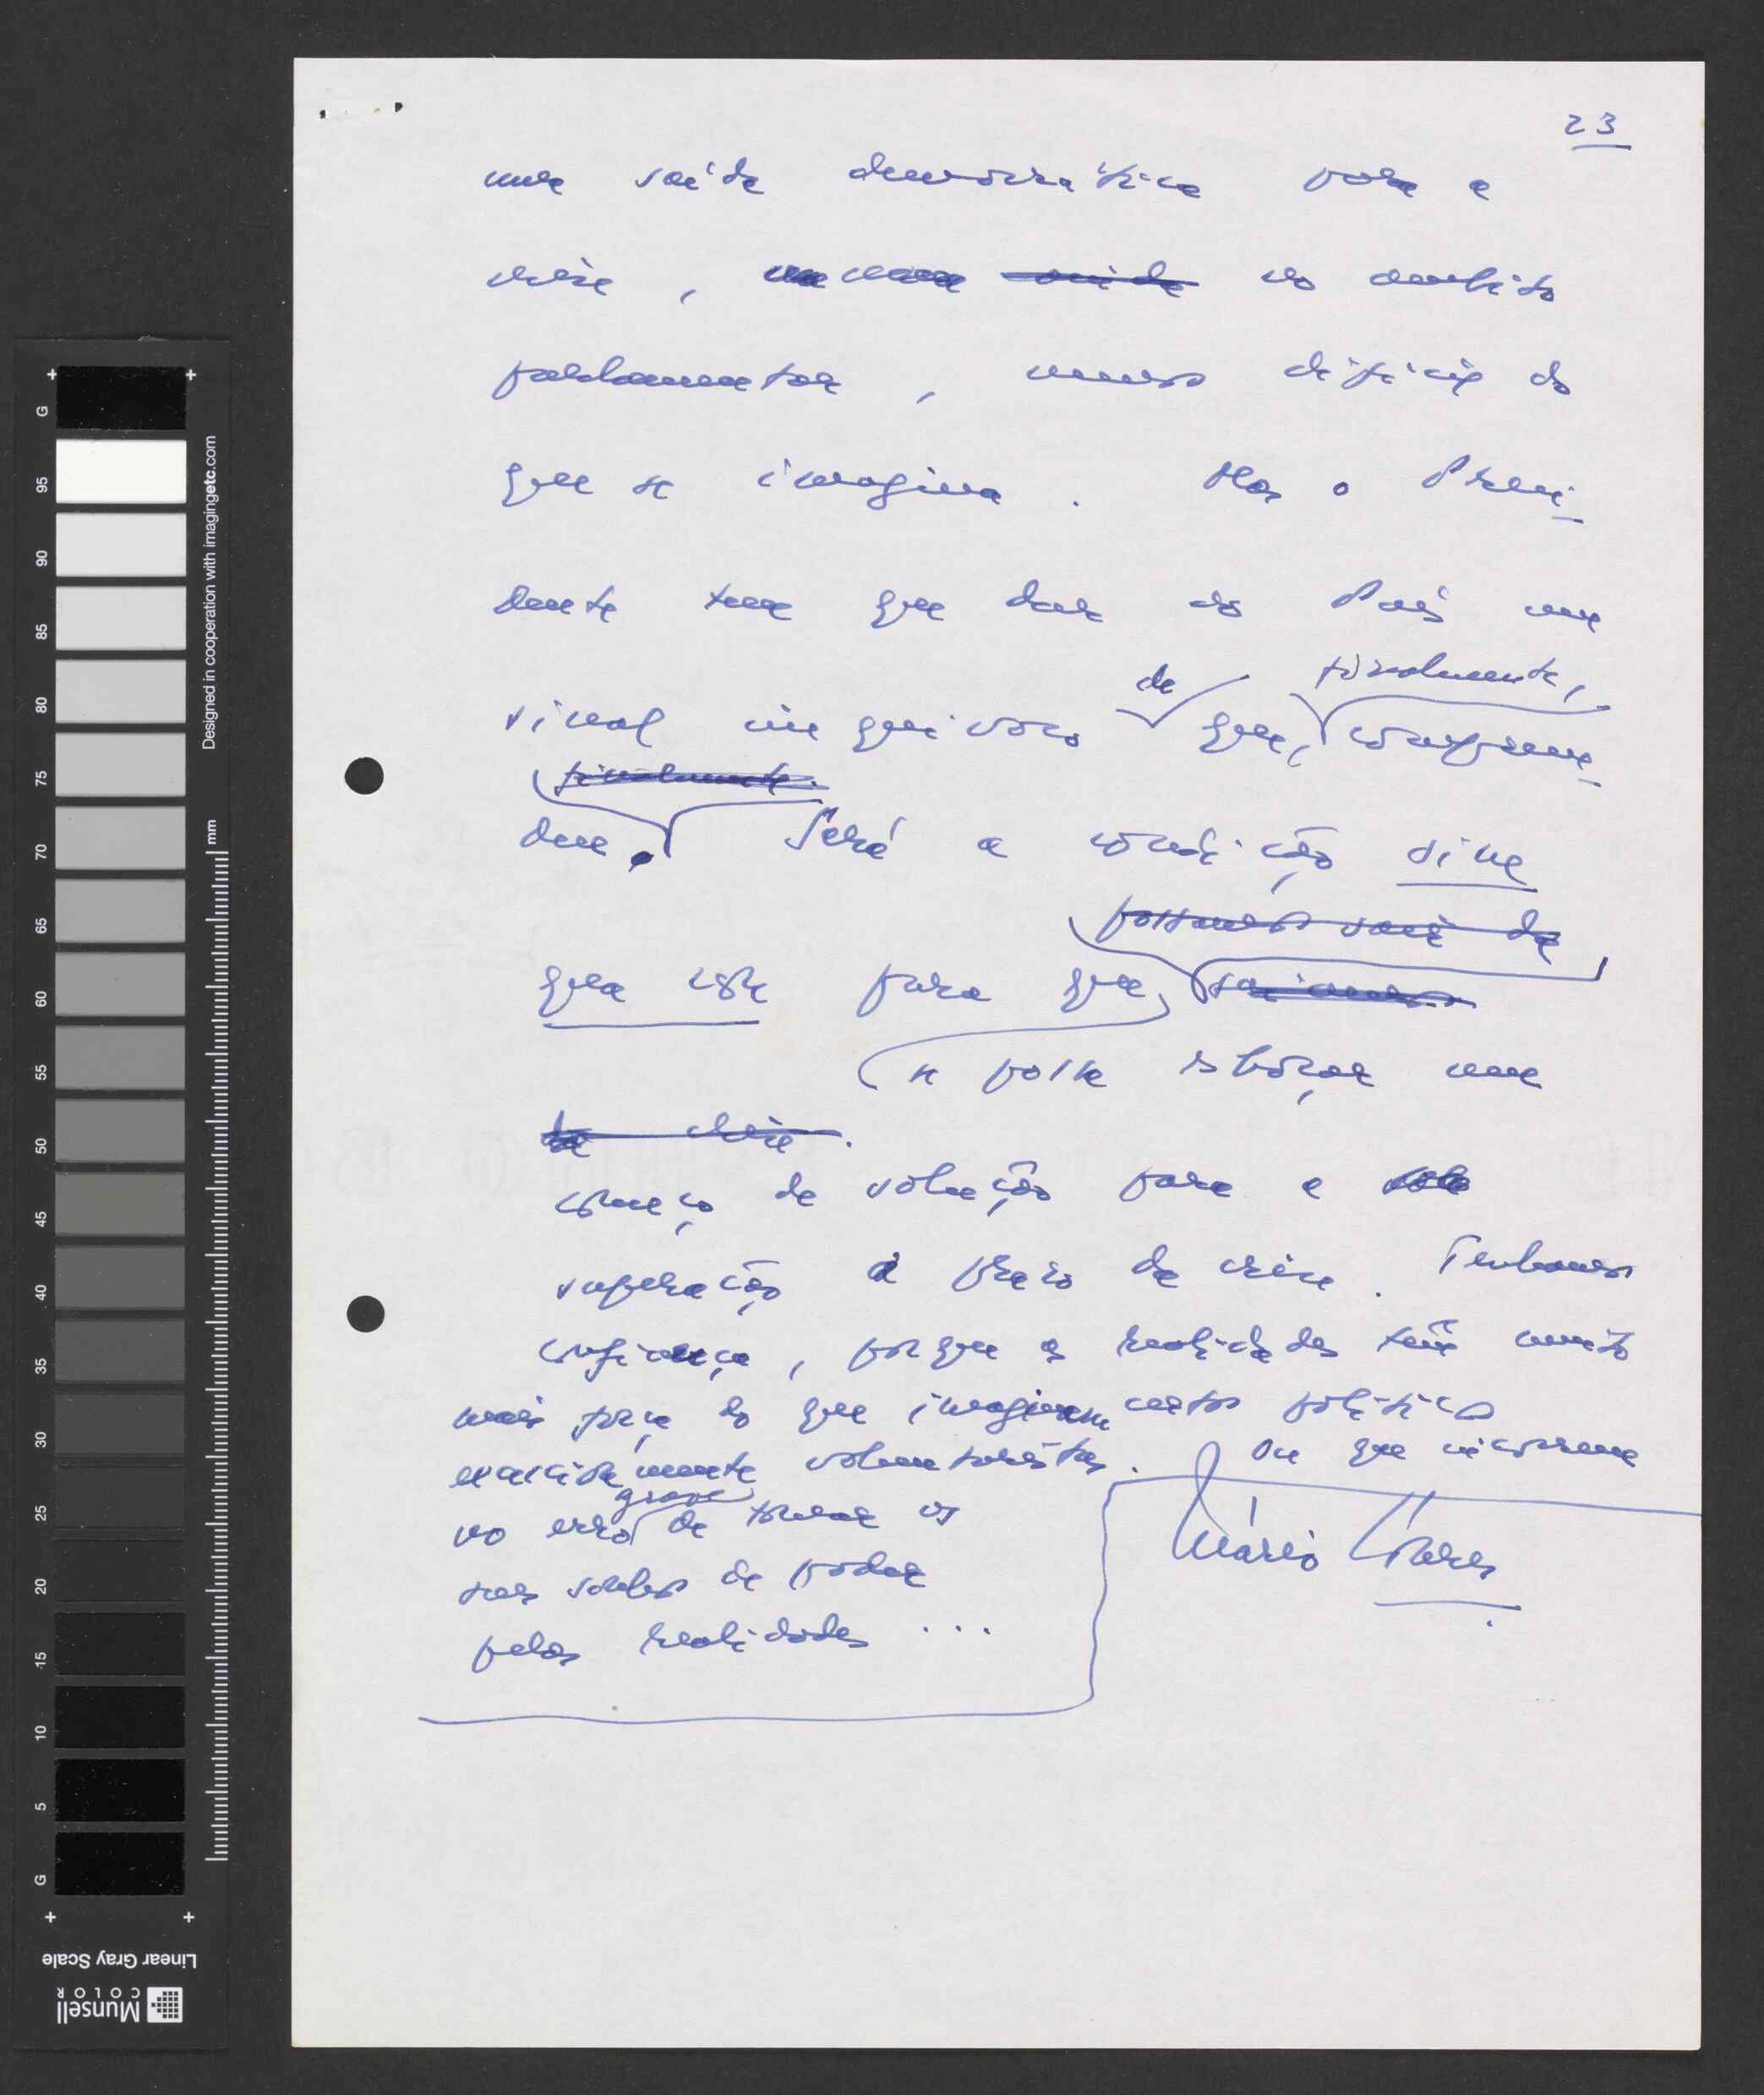 23
uma saída democrática para a
crise, no âmbito
parlamentar, menos difícil do
que se imagina. Mas o Presi-
dente tem que dar ao País um
de finalmente,
sinal inequívoco que, compreen-
finalmente.
deu. Será a condição sine
possamos sair da
qua non para que saiamos
se possa esboçar um
da crise.
começo de solução para a
superação a prazo da crise. Tenhamos
confiança, porque as realidades têm muito
mais força do que imaginam certos políticos
excessivamente voluntaristas. Ou que incorrem
grave
no erro de tomar os
seus sonhos de poder
pelas realidades ...
Mário Soares
Designed in cooperation with imagingetc.com
mm
G 95 90 85 80 75 70 65 60 55 50 45 40 35 30 25 20 15 10 5 G
Linear Gray Scale
Munsell
COLOR